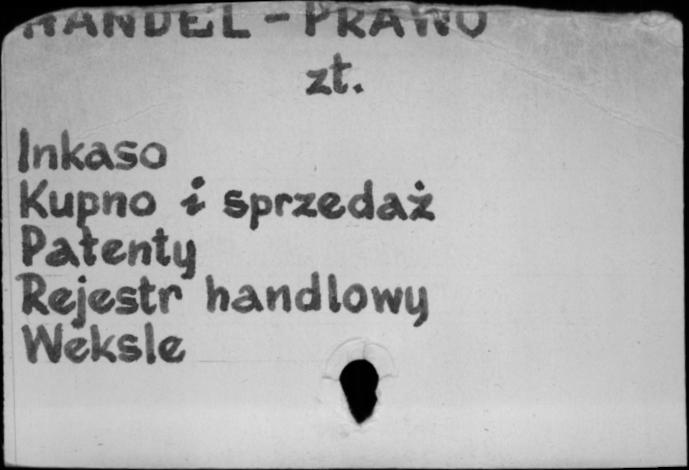 HANDEL - PRAWO
zt.
Inkaso
Kupno i sprzedaż
Patenty
Rejestr handlowy
Weksle